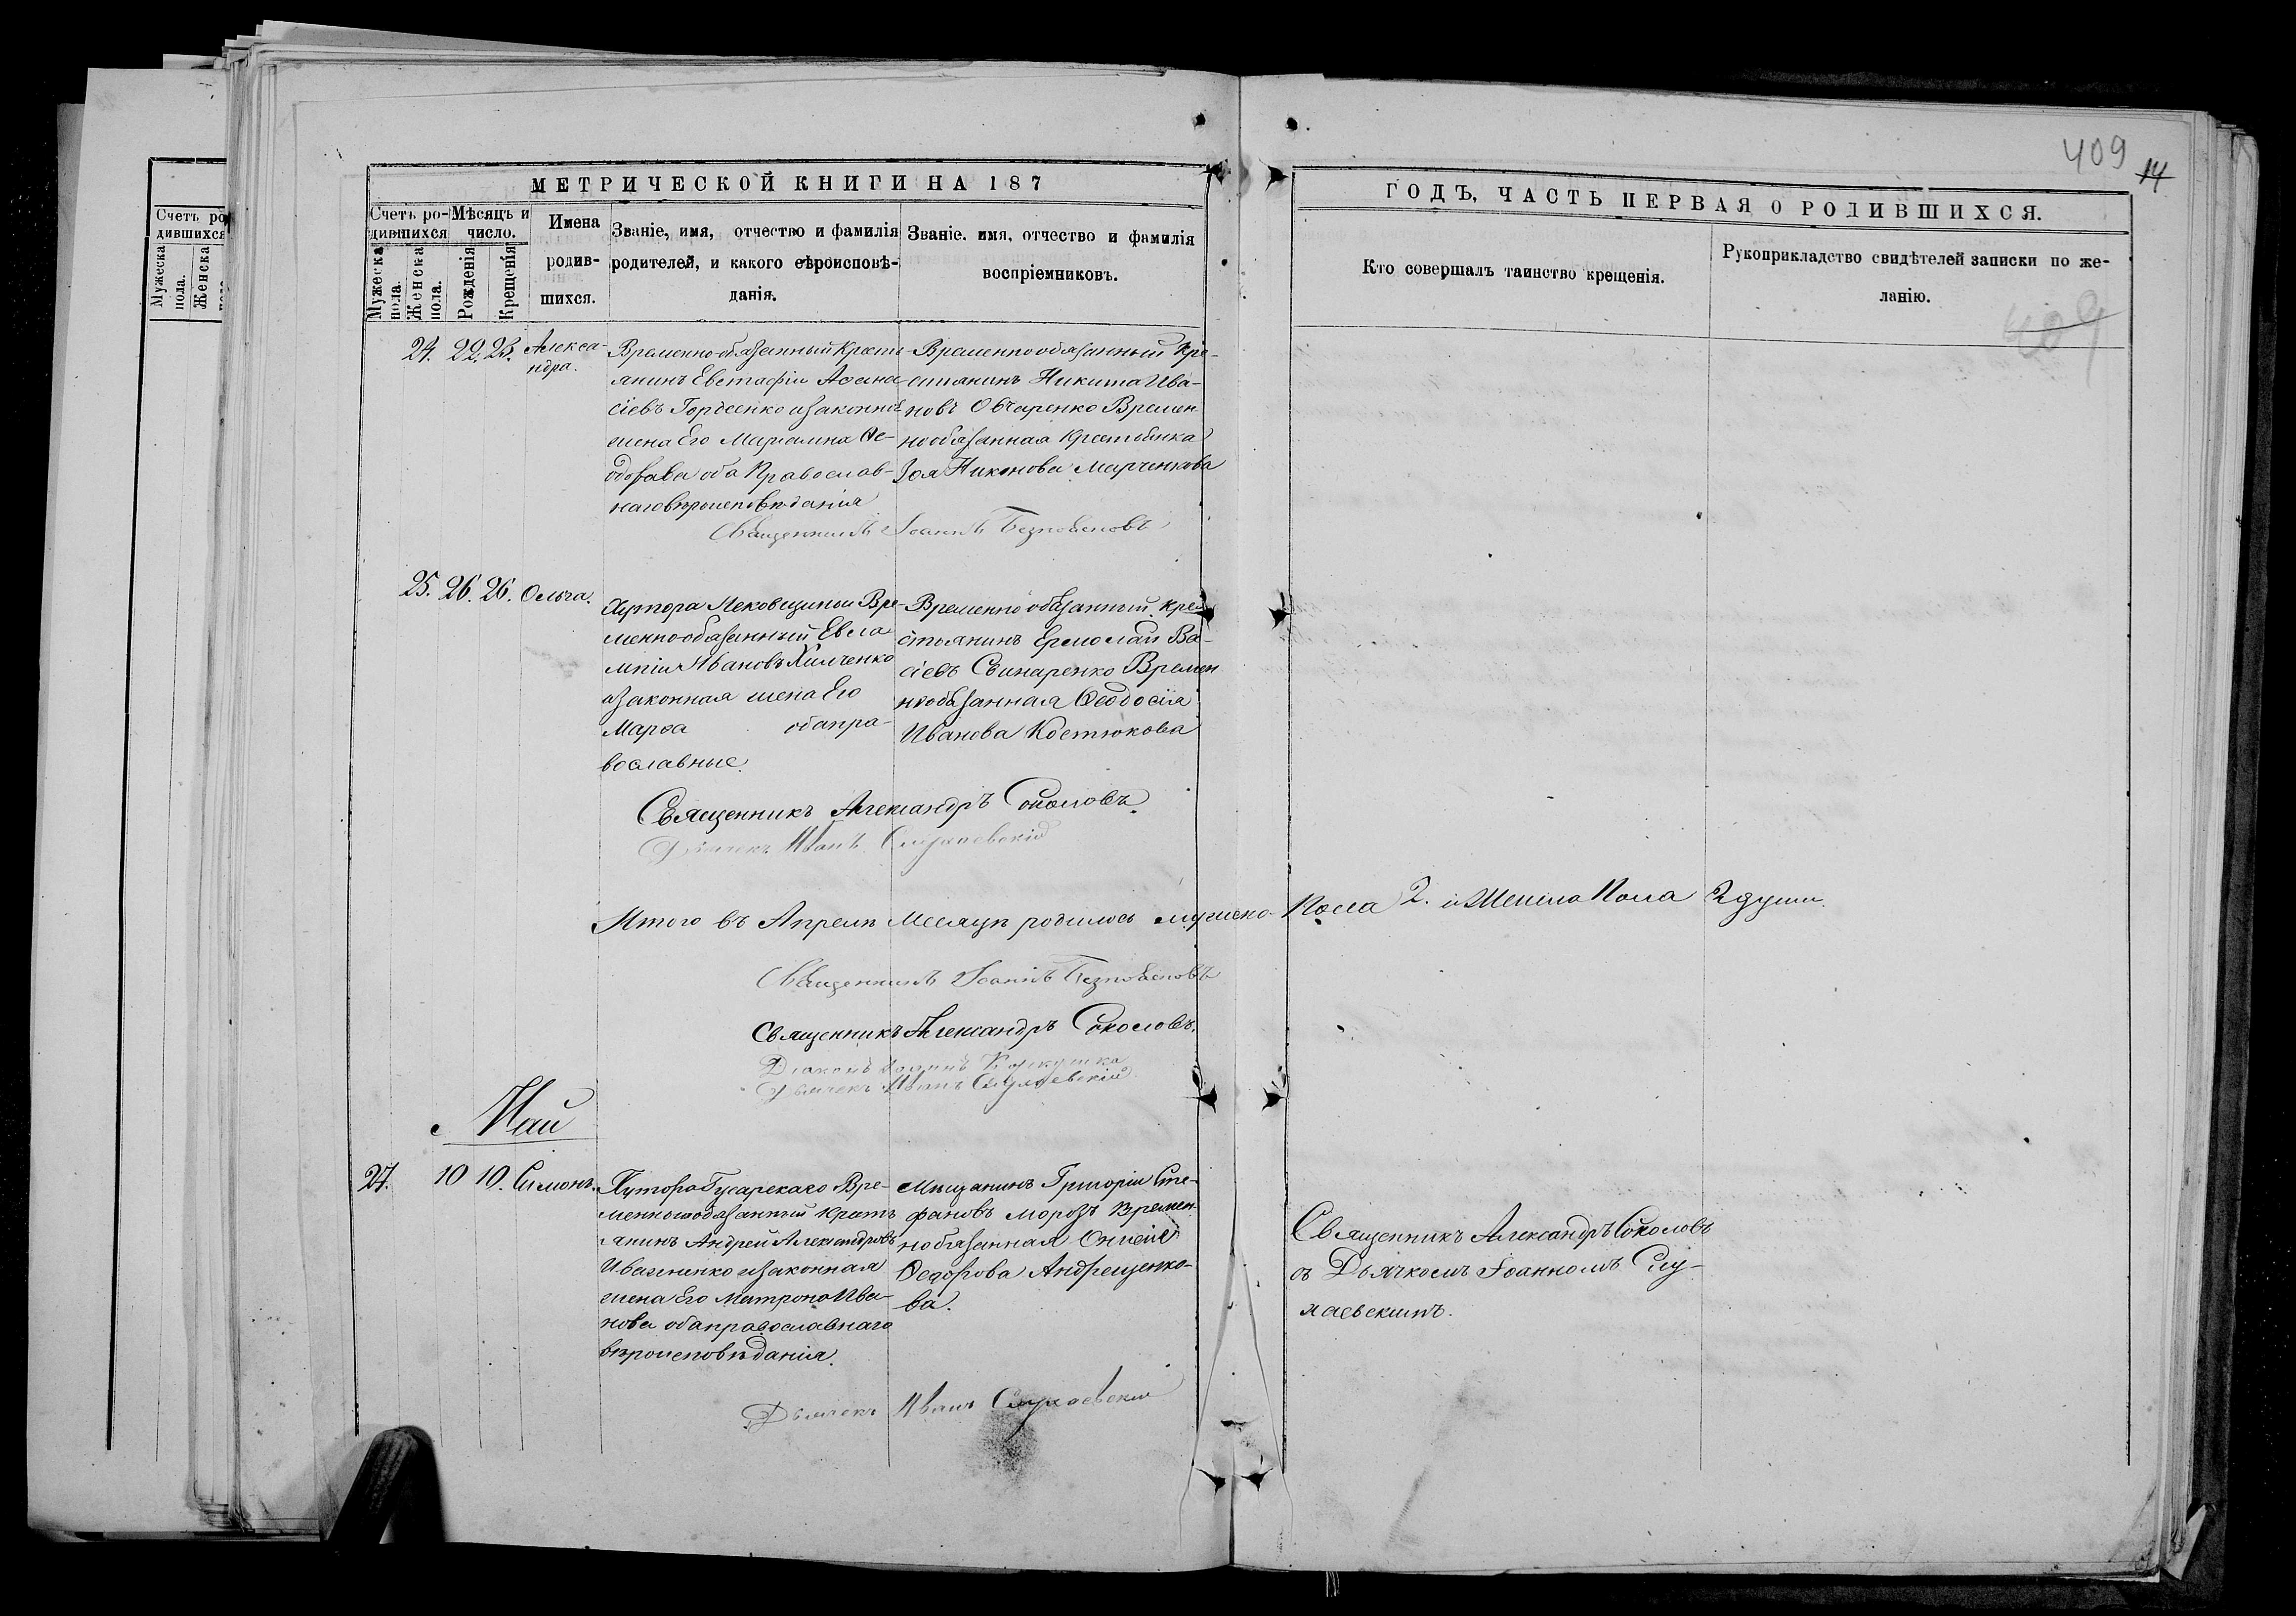 409 14
МЕТРИЧЕСКОЙ КНИГИ НА 187
ГОДЪ, ЧАСТЬ ПЕРВАЯ О РОДИВШИХСЯ.
Счетъ ро-
дившихся
Мужеска
пола.
Женска
Счетъ ро-
дившихся
Мужеска
пола.
Женска
пола.
Мѣсяцъ и
число.
Рожденія
Крещенія
Имена
родив-
шихся.
Званіе, имя, отчество и фамилія
родителей, и какого вѣроисповѣ-
данія.
Званіе, имя, отчество и фамилія
воспріемниковъ.
Кто совершалъ таинство крещенія.
Рукоприкладство свидѣтелей записки по же-
ланію.
409
24. 22. 23. Алекса-
ндра.
Временно-обязанный Крест-
янинъ Евстафiи Аѳана-
сiевъ Гордеенко изаконная
жена Его Марiамна Ѳе-
одорова оба Православ-
наго вѣроисповѣданiя
Временно обязанный Кре-
стянинъ Никита Ива-
новъ Овчаренко Времен-
нообязанная Крестьянка
Зоя Никонова Марченкова
Священникъ Iоаннъ
25. 26. 26. Ольга.
Хутора Лековщиныи Вре-
меннообязанный Евла-
мпiи Ивановъ Химченко
изаконная жена Его
Марѳа обапра-
вославные.
Временно обязанный кре-
стьянинъ Ермолай Ва-
сiевъ Свинаренко Времен
нообязанная Ѳеодосiя
Иванова Костюкова
Священникъ Александръ Соколовъ.
Дьячекъ Иванъ
Итого въ Апреле Месяце родилось мужеска Пола 2. и Женска Пола 2 души.
Священникъ Iоаннъ
Священникъ Александръ Соколовъ.
Дiаконъ Iоаннъ
Дьячекъ Иванъ
Май
27. 10 10. Симонъ.
Хутора Гусарскаго Вре-
меннообязанный Крест-
янинъ Андрей Александровъ
изаконная
жена Его Матрона Ива-
нова обаправославнаго
вѣроисповѣданiя.
Мѣщанинъ Григорiи Сте-
фановъ Морозъ Времен-
нобязанная
Ѳедорова Андрещенко-
ва.
Священникъ Александръ Соколовъ
съ Дьячкомъ Iоанномъ Слу-
хаевскимъ.
Дьячекъ Иванъ Слухаевскiй